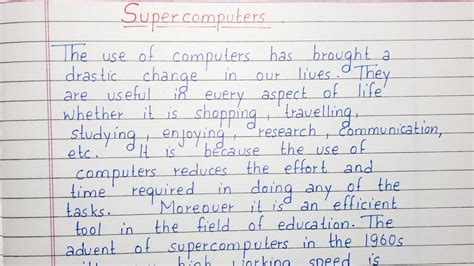 Supercomputers.
The use of computers has brought a
drastic change in our lives. They
are useful in every aspect of life
whether it is shopping, travelling,
studying, enjoying, research, communication,
etc. It is because the use of
computers reduces the effort and
time required in doing any of the
tasks. Moreover it is an efficient
tool in the field of education. The
advent of supercomputers in the 1960s
high working speed is